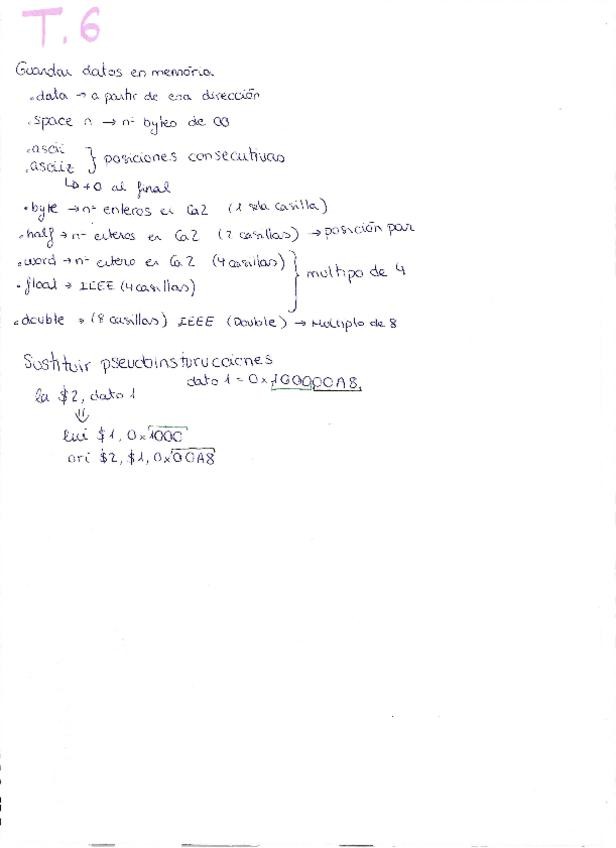 T.6
Guardar datos en memoria.
.data → a partir de esa dirección
.space n → nº bytes de 00
.ascii
.asciiz } posiciones consecutivas
↳ +0 al final
.byte → nº enteros en Ca2 (1 sola casilla)
.half → nº enteros en Ca2 (2 casillas) → posición par
.word → nº entero en Ca2 (4 casillas)
.float → IEEE (4 casillas) } multipo de 4
.double → (8 casillas) IEEE (Double) → Multiplo de 8
Sustituir pseudoinstrucciones
dato 1 = 0x100000A8
la $2, dato 1
⇓
lui $1, 0x1000
ori $2, $1, 0x00A8